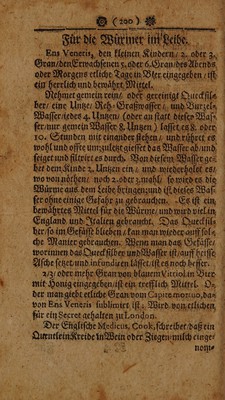 ( 200 )
Für die Würmer im Leibe.
Ens Veneris, den kleinen Kindern/ 2. oder 3.
Gran/ den Erwachsenen 5. oder 6. Gran/ des Abends
oder Morgens etliche Tage in Bier eingegeben/ ist
ein herrlich und bewährt Mittel.
Nehmet gemein rein/ oder gereinigt Quecksil-
ber/ eine Untz/ Reh-Graßwasser/ und Burzel-
Wasser/ jedes 4. Untzen/ (oder an statt dieser Was-
ser/ nur gemein Wasser 8. Untzen/) lasset es 8. oder
10. Stunden mit einander stehen/ und rühret es
wohl und offte um; zuletzt giesset das Wasser ab/ und
seiget und filtrirt es durch. Von diesem Wasser ge-
bet dem Kinde 1. Untzen ein/ und wiederholet es/
wo von nöthen/ noch 2. oder 3. mahl/ so wird es die
Würme aus dem Leibe bringen; und ist dieses Was-
ser ohne einige Gefahr zu gebrauchen. Es ist ein
bewährtes Mittel für die Würme/ und wird viel in
England und Italien gebraucht. Das Quecksil-
ber/ so im Gefässe blieben/ kan man wieder auff sol-
che Manier gebrauchen. Wenn man das Gefässe/
worinnen das Quecksilber und Wasser ist/ auff heisse
Asche setzt und infundiren lässet/ ist es noch besser.
2/3/ oder mehr Gran von blauem Vitriol in Bier
mit Honig eingegeben/ ist ein trefflich Mittel. O-
der man giebt etliche Gran vom Capite mortuo, das
von Ens Veneris sublimirt ist. Wird von etlichen
für ein Secret gehalten zu London.
Der Englische Medicus, Cook, schreibet/ daß ein
Quentlein Kreide in Wein oder Ziegen-milch einge-
nom-